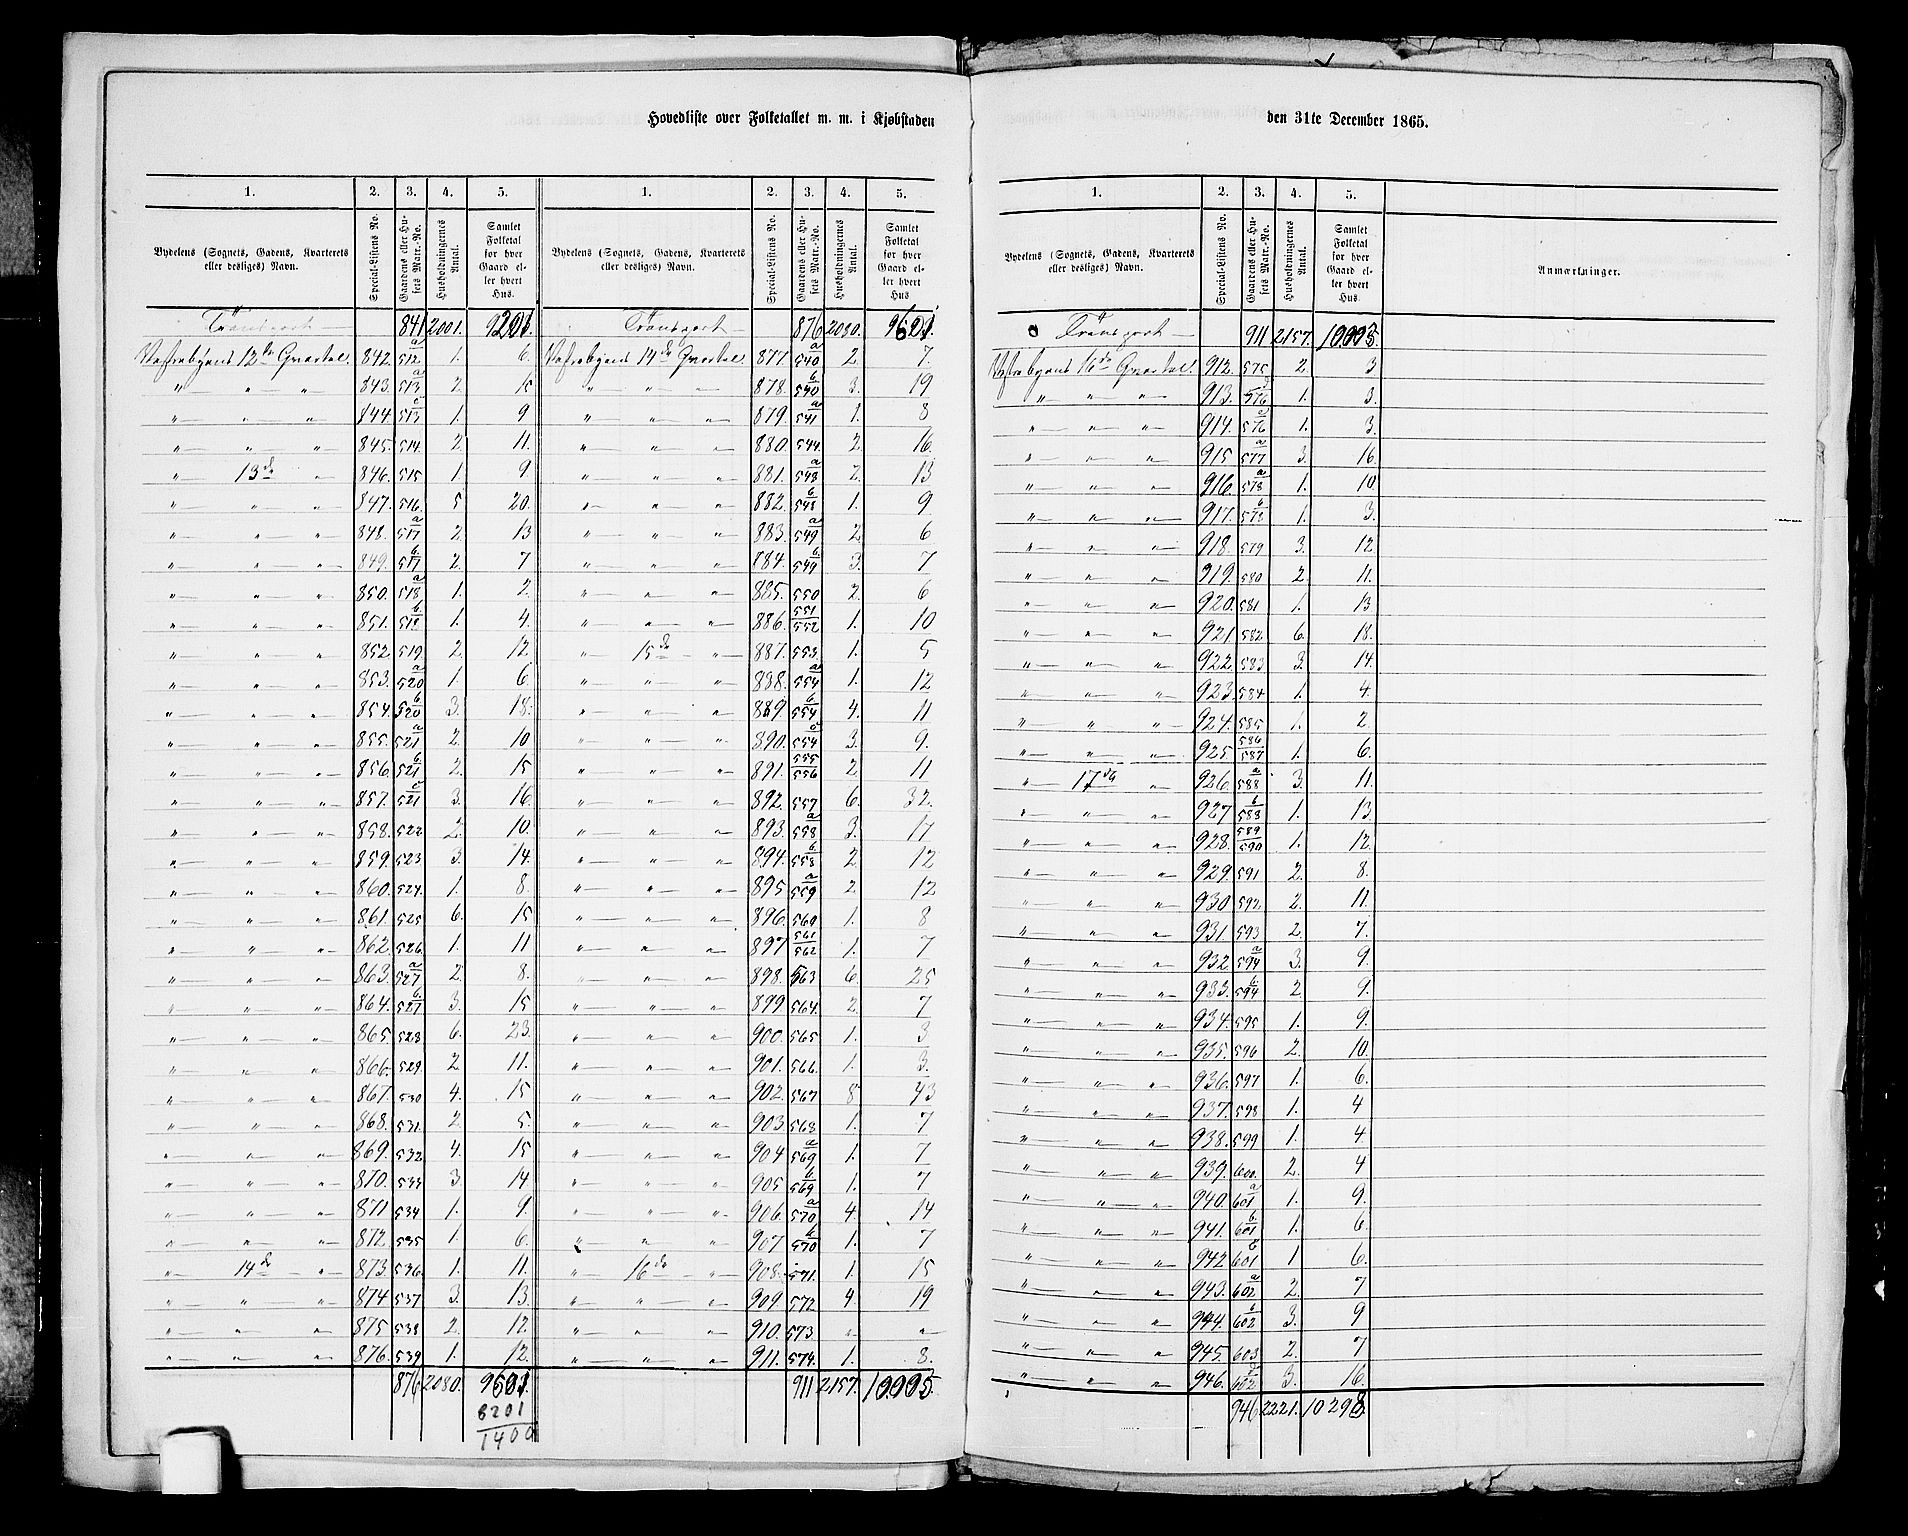 Hovedliste over Folketallet m. m. i Kjøbstaden
den 31te December 1865.
1. 2. 3. 4. 5. 1. 2. 3. 4. 5.
Bydelens (Sognets, Gadens, Kvarterets eller desliges) Navn. Special-Listens No. Gaardens eller Husets Matr.-No. Husholdningernes Antal. Samlet Folketal for hver Gaard eller hvert Hus. Bydelens (Sognets, Gadens, Kvarterets eller desliges) Navn. Special-Listens No. Gaardens eller Husets Matr.-No. Husholdningernes Antal. Samlet Folketal for hver Gaard eller hvert Hus
Transport — 841 2001. 9201. Transport — 876 2080. 9601.
Vestrebyens 12de Qvartal. 842. 512 a 1. 6. Vestrebyens 14de Qvartal 877. 540 a 2. 7.
" " " 843. 513 a 2. 15 " " " 878. 540 b 3. 19
" " " 844. 513 c 1. 9 " " " 879. 541 a 1. 8
" " " 845. 514. 2. 11. " " " 880. 544 2. 16.
" 13de " 846. 515 1. 9 " " " 881. 548 a 2. 13
" " " 847. 516. 5 20. " " " 882. 548 b 1. 9
" " " 848. 517 a 2. 13 " " " 883. 549 a 2. 6
" " " 849. 517 b 2. 7 " " " 884. 549 b 3. 7
" " " 850. 518 a 1. 2. " " " 885. 550 2. 6
" " " 851. 518 b 1. 4. " " " 886. 551/552 1. 10
" " " 852. 519. 2. 12. " 15de " 887. 553. 1. 5
" " " 853. 520 a 1. 6. " " " 888. 554 a 1. 12
" " " 854. 520 b 3. 18. " " " 889. 554 b 4. 11
" " " 855. 521 a 2. 10 " " " 890. 554 c 3. 9.
" " " 856. 521 b 2. 15 " " " 891. 555/556 2. 11
" " " 857. 521 c 3. 16. " " " 892. 557 6. 32.
" " " 858. 522 2. 10. " " " 893. 558 a 3. 17
" " " 859. 523 3. 14. " " " 894. 558 b 2. 12
" " " 860. 524. 1. 8. " " " 895 559 a 2. 12
" " " 861. 525 6. 15 " " " 896. 560 1. 8
" " " 862. 526. 1. 11 " " " 897 561/562 1. 7
" " " 863. 527 a 2. 8. " " " 898. 563 6. 25
" " " 864. 527 b 3. 15 " " " 899 564. 2. 7
" " " 865 528 6. 23. " " " 900. 565 1. 3
" " " 866. 529. 2 11. " " " 901. 566 1. 3.
" " " 867. 530 4. 15 " " " 902. 567 8 43
" " " 868. 531. 2 5. " " " 903 568 1. 7
" " " 869. 532 4. 15 " " " 904 569 a 1. 7
" " " 870. 533 3. 14 " " " 905 569 b 1. 7
" " " 871 534 1. 9 " " " 906. 570 a 4. 14
" " " 872. 535 1. 6. " " " 907 570 b 1. 7
" 14de " 873. 536. 1. 11. " 16de " 908. 571. 1. 15
" " " 874 537 3. 13. " " " 909 572 4 19
" " " 875 538 2. 12. " " " 910. 573. " "
" " " 876. 539 1. 12. " " " 911. 574. 1. 8.
876 2080. 9601. 911 2157. 10.003.
8201
1400
1. 2. 3. 4. 5.
Bydelens (Sognets, Gadens, Kvarterets eller desliges) Navn. Special-Listens No. Gaardens eller Husets Matr.-No. Husholdningernes Antal. Samlet Folketal for hver Gaard eller hvert Hus. Anmærkninger.
Transport — 911 2157. 10.003.
Vestrebyens 16de Qvartal. 912. 575 2. 3
" " " 913. 576 1. 3.
" " " 914. 576 1. 3.
" " " 915 577 a 3. 16
" " " 916. 578 a 1. 10
" " " 917. 578 b 1. 3.
" " " 918. 579 3. 12.
" " " 919. 580 2. 11.
" " " 920. 581 1. 13
" " " 921. 582 6. 18.
" " " 922. 583 3. 14.
" " " 923. 584 1. 4
" " " 924. 585 1. 2.
" " " 925. 586/587 1. 6.
" 17de " 926. 588 a 3. 11.
" " " 927 588 b 1. 13.
" " " 928. 589/590 1. 12.
" " " 929. 591 2. 8.
" " " 930 592. 2. 11.
" " " 931. 593 2. 7.
" " " 932 594 a 3. 9.
" " " 933. 594 b 2. 9.
" " " 934. 595 1. 9.
" " " 935. 596 2. 10.
" " " 936. 597 1. 6.
" " " 937. 598 1. 4
" " " 938. 599 1. 4
" " " 939. 600. 2. 4
" " " 940. 601 a 1. 9.
" " " 941. 601 b 1. 6.
" " " 942 601 c 1 6.
" " " 943. 602 a 2. 7
" " " 944. 602 b 3. 9
" " " 945. 603 2. 7
" " " 946. 602 3. 16.
946 2221. 10298.